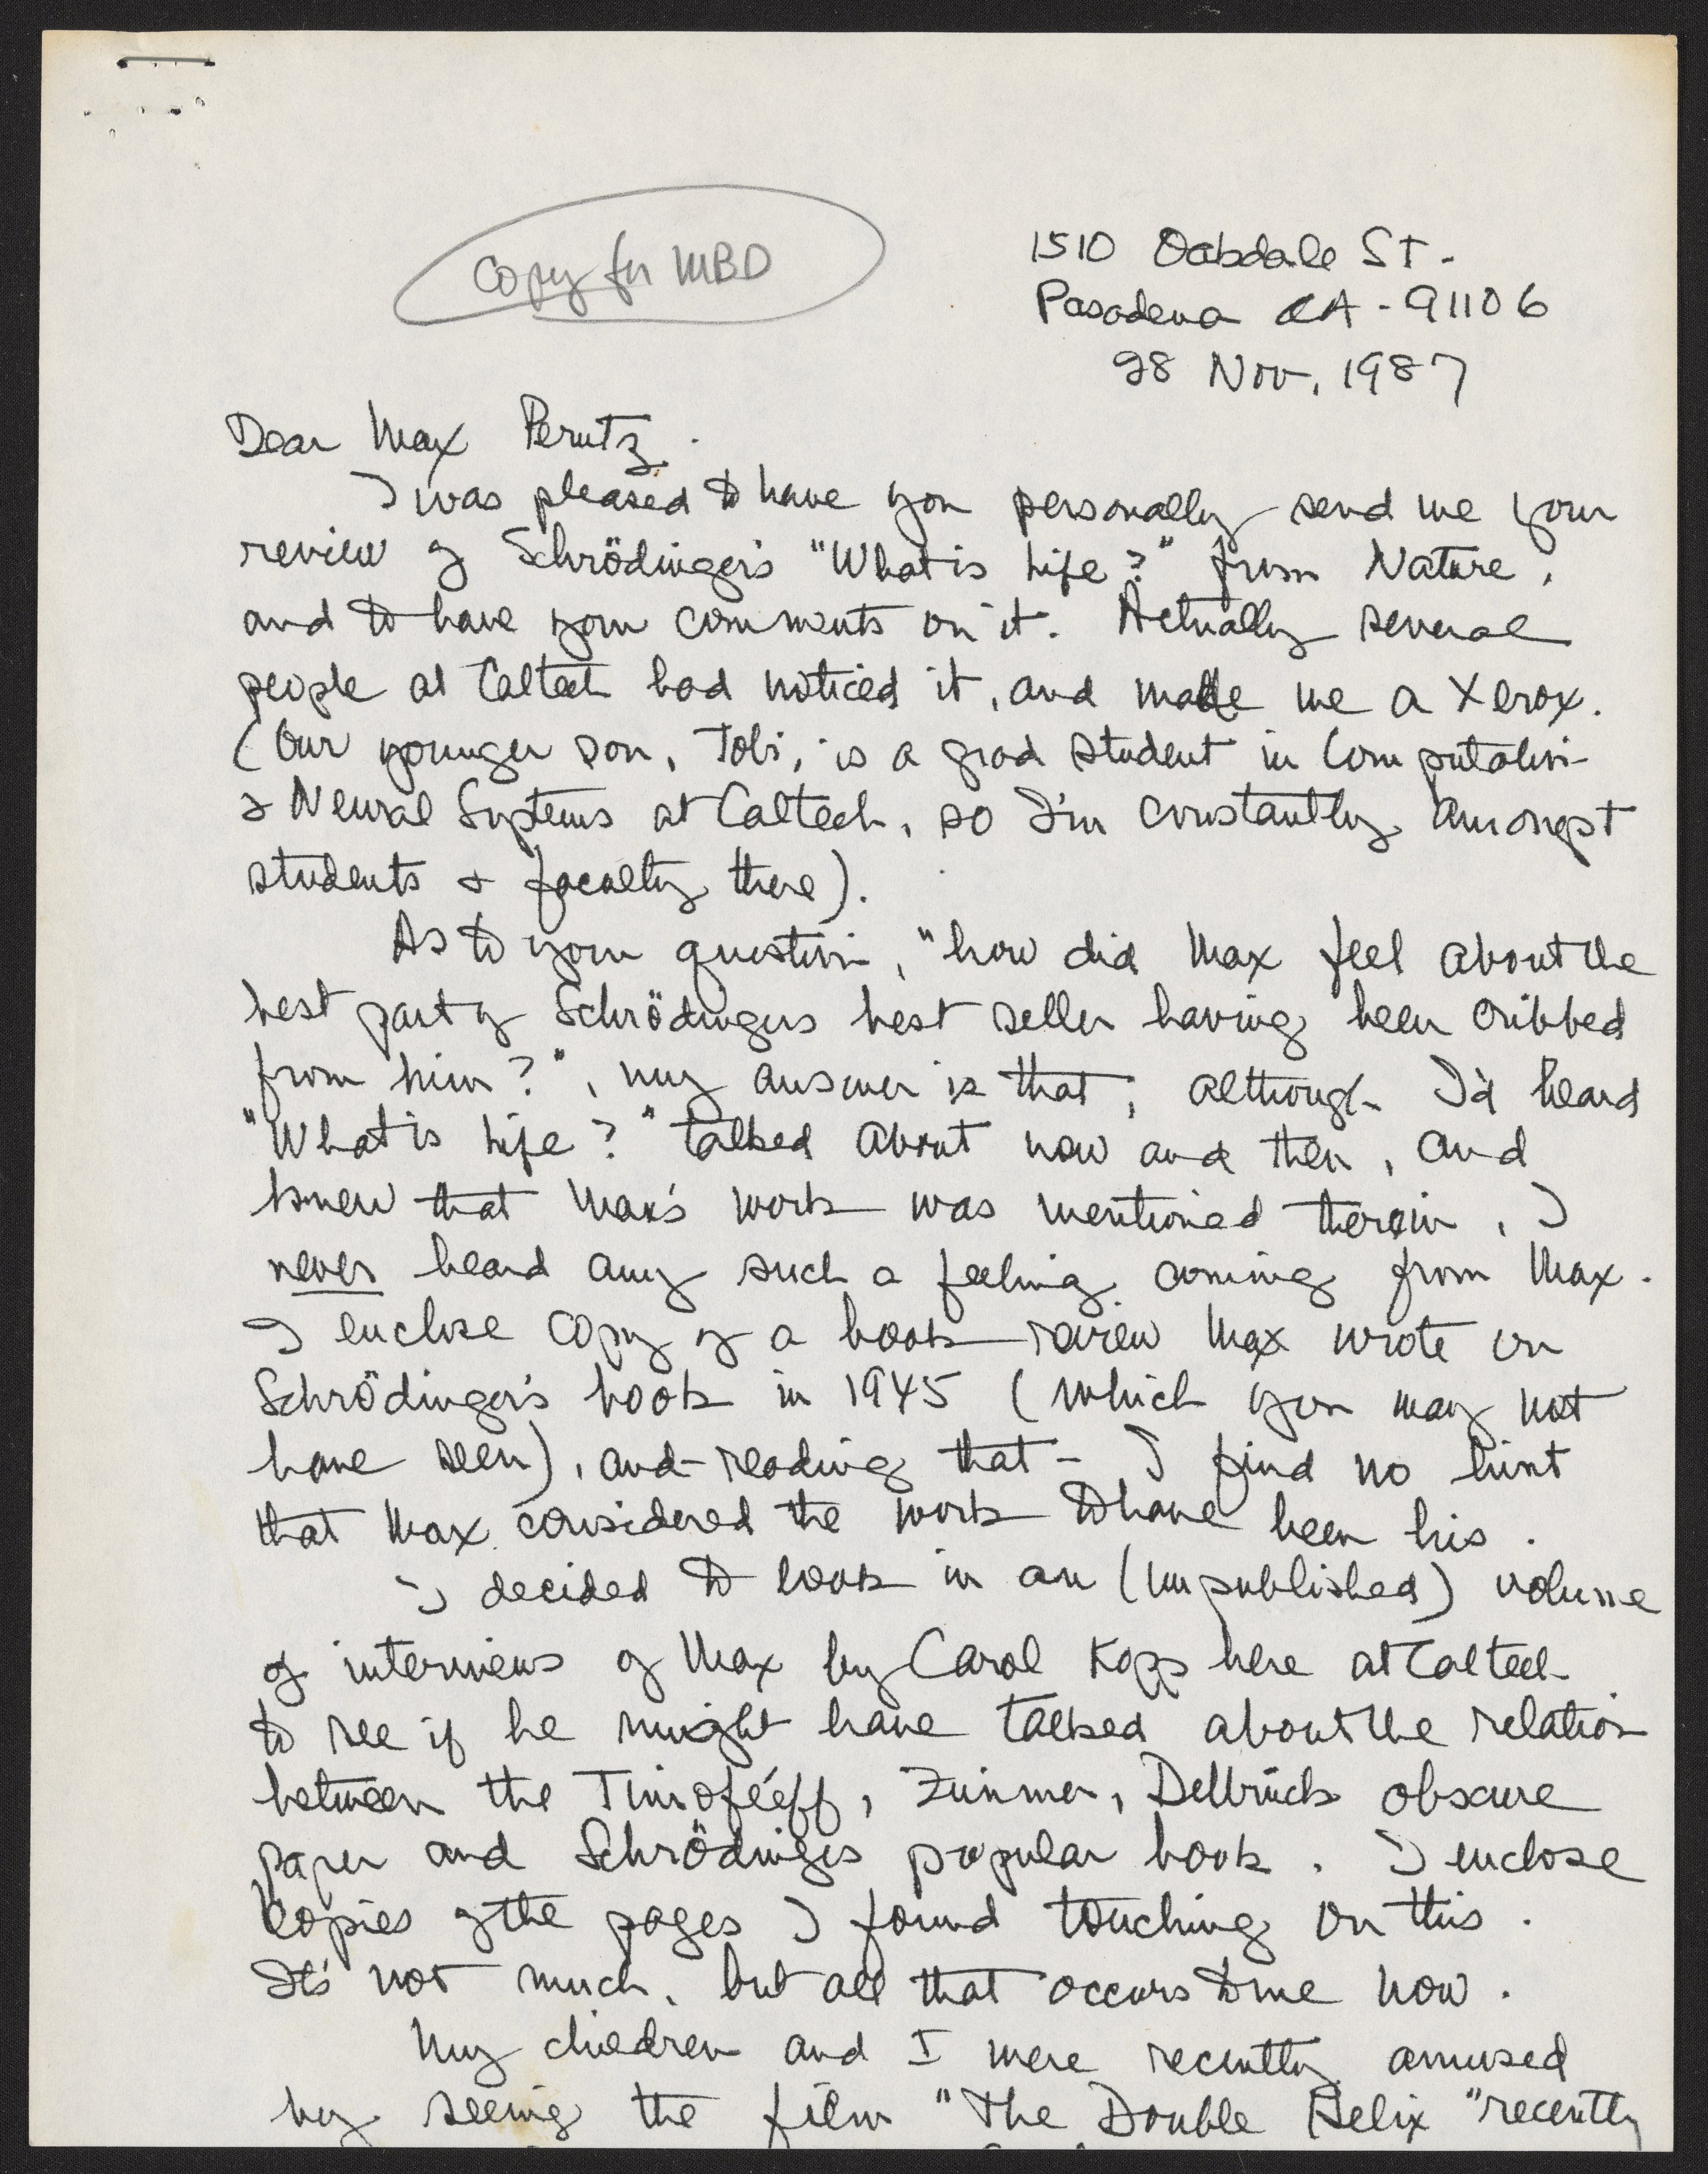 Copy for MBD
1510 Oakdale St.
Pasadena CA - 91106
28 Nov, 1987
Dear Max Perutz.
I was pleased to have you personally send me your
review of Schrödinger's "What is Life?" from Nature,
and to have your comments on it. Actually several
people at Caltech had noticed it, and made me a Xerox.
(Our younger son, Tobi, is a grad student in Computation
& Neural Systems at Caltech, so I'm constantly amongst
students & faculty there).
As to your question, "how did Max feel about the
best part of Schrödingers best seller having been cribbed
from him?", my answer is that, although I'd heard
"What is Life?" talked about now and then, and
knew that Max's work was mentioned therein, I
never heard any such a feeling coming from Max.
I enclose copy of a book review Max wrote on
Schrödinger's book in 1945 (which you may not
have seen), and - reading that - I find no hint
that Max considered the work to have been his.
I decided to look in an (unpublished) volume
of interviews of Max by Carol Kopp here at Caltech
to see if he might have talked about the relation
between the Timoféeff, Zimmer, Delbrück obscure
paper and Schrödinger's popular book. I enclose
copies of the pages I found touching on this.
It's not much, but all that occurs to me now.
My children and I were recently amused
by seeing the film "The Double Helix" recently